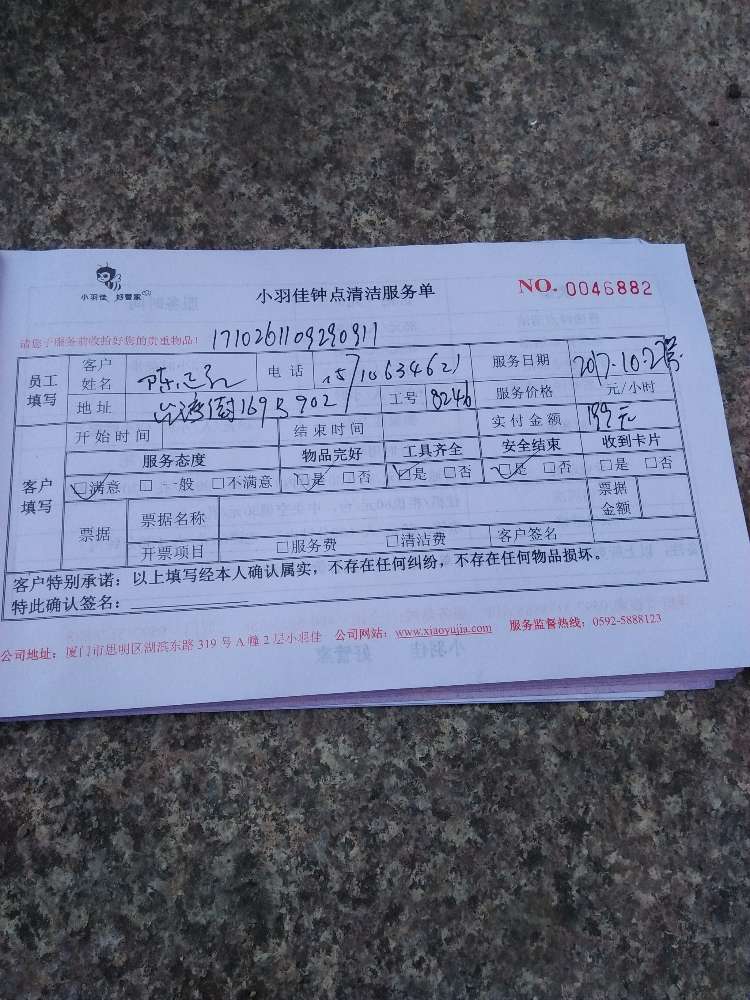 小羽佳 好管家
小羽佳钟点清洁服务单
NO. 0046882
请您于服务前收拾好您的贵重物品！
1710261109290911
员工填写 客户姓名 电话 15710634621 服务日期 2017.10.27号
地址 169号902 工号 8246 服务价格 元/小时
客户填写 开始时间 结束时间 实付金额 199元
服务态度 物品完好 工具齐全 安全结束 收到卡片
□满意 □一般 □不满意 □是 □否 □是 □否 □是 □否 □是 □否
票据 票据名称 票据金额
开票项目 □服务费 □清洁费 客户签名
客户特别承诺：以上填写经本人确认属实，不存在任何纠纷，不存在任何物品损坏。
特此确认签名：
公司地址：厦门市思明区湖滨东路 319 号 A 幢 2 层小羽佳 公司网站：www.xiaoyujia.com 服务监督热线：0592-5888123